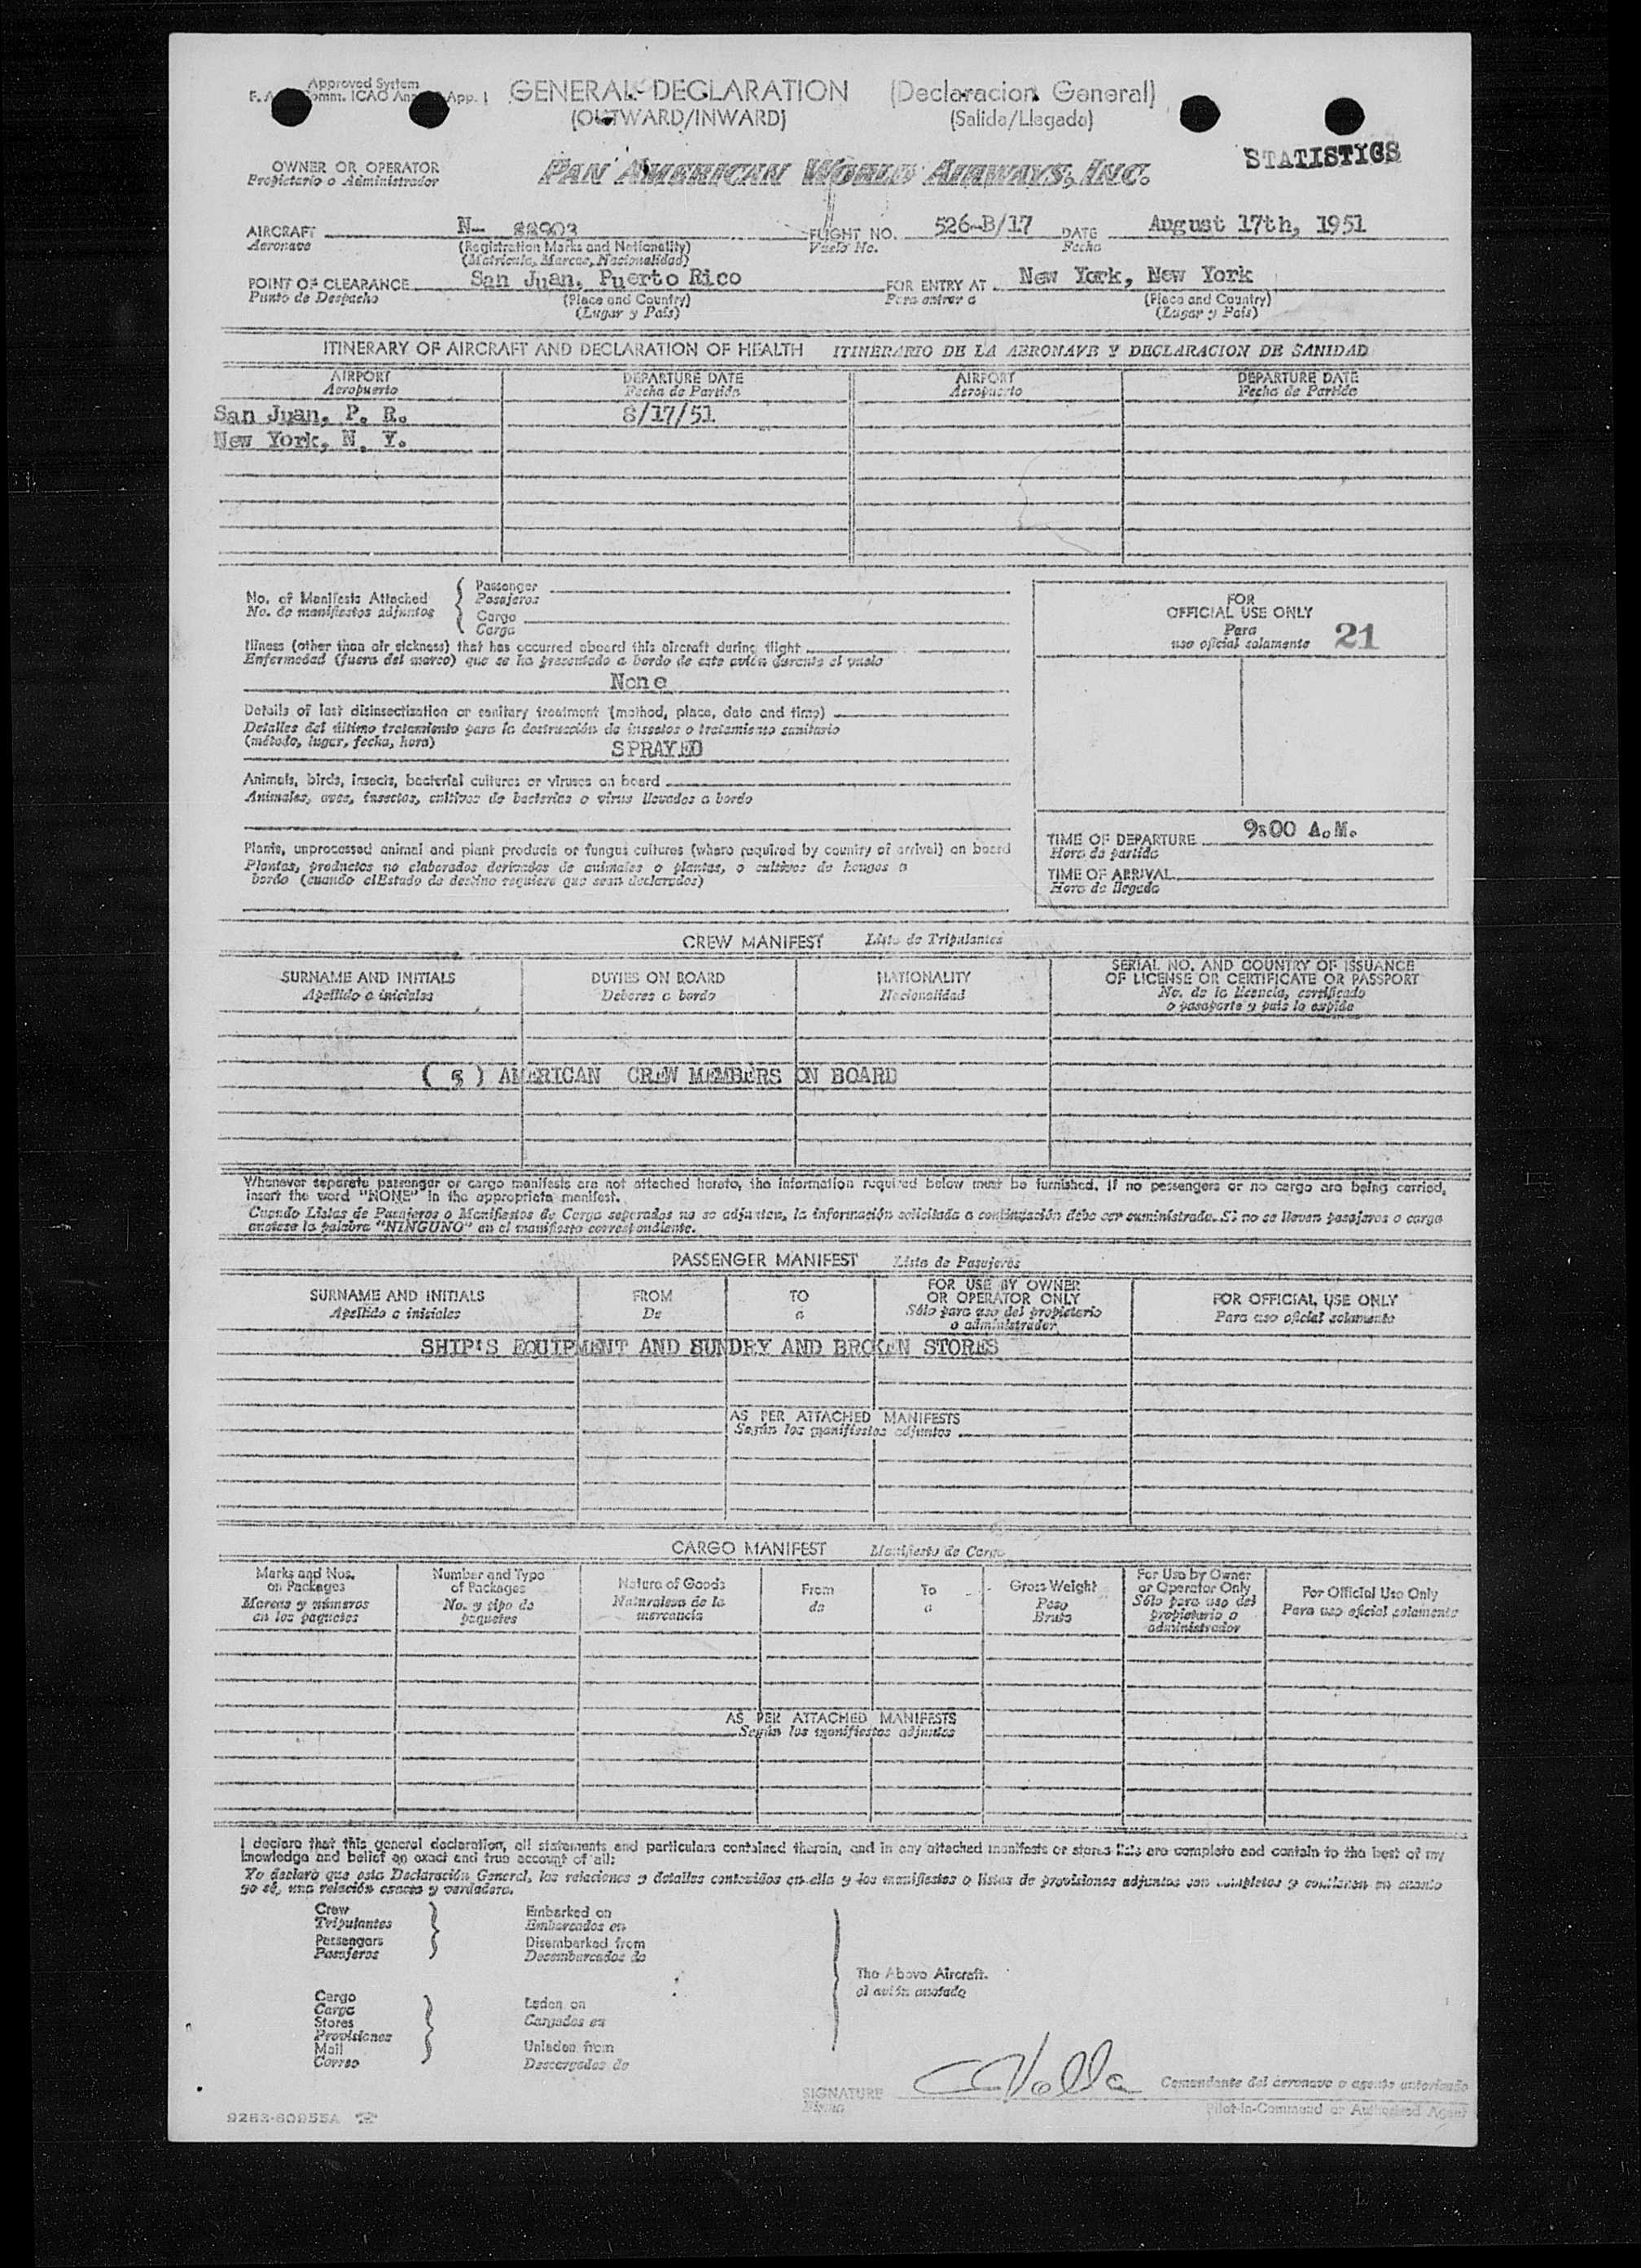 Approved System
App. 1
GENERAL DECLARATION (Declaracion General)
(OUTWARD/INWARD) (Salida/Llegada)
STATISTICS
OWNER OR OPERATOR
Propietario o Administrador
PAN AMERICAN WORLD AIRWAYS, INC.
AIRCRAFT N- 88903 FLIGHT NO. 526-B/17 DATE August 17th, 1951
Aeronave (Registration Marks and Nationality) Vuelo No. Fecha
(Matricula, Marcas, Nacionalidad)
POINT OF CLEARANCE San Juan, Puerto Rico FOR ENTRY AT New York, New York
Punto de Despacho (Place and Country) Para entrar a (Place and Country)
(Lugar y País) (Lugar y País)
ITINERARY OF AIRCRAFT AND DECLARATION OF HEALTH ITINERARIO DE LA AERONAVE Y DECLARACION DE SANIDAD
AIRPORT DEPARTURE DATE AIRPORT DEPARTURE DATE
Aeropuerto Fecha de Partida Aeropuerto Fecha de Partida
San Juan, P. R. 8/17/51
New York, N. Y.
No. of Manifests Attached
No. de manifiestos adjuntos
Passenger
Pasajeros
Cargo
Carga
FOR
OFFICIAL USE ONLY
Para
uso oficial solamente 21
Illness (other than air sickness) that has occurred aboard this aircraft during flight
Enfermedad (fuera del mareo) que se ha presentado a bordo de este avión durante el vuelo
None
Details of last disinsectization or sanitary treatment (method, place, date and time)
Detalles del último tratamiento para la destrucción de insectos o tratamiento sanitario
(método, lugar, fecha, hora)
SPRAYED
Animals, birds, insects, bacterial cultures or viruses on board
Animales, aves, insectos, cultivos de bacterias o virus llevados a bordo
Plants, unprocessed animal and plant products or fungus cultures (where required by country of arrival) on board
Plantas, productos no elaborados derivados de animales o plantas, o cultivos de hongos a
bordo (cuando el Estado de destino requiere que sean declarados)
TIME OF DEPARTURE 9:00 A.M.
Hora de partida
TIME OF ARRIVAL
Hora de llegada
CREW MANIFEST Lista de Tripulantes
SURNAME AND INITIALS DUTIES ON BOARD NATIONALITY SERIAL NO. AND COUNTRY OF ISSUANCE
OF LICENSE OR CERTIFICATE OR PASSPORT
Apellido e iniciales Deberes a bordo Nacionalidad No. de la licencia, certificado
o pasaporte y país lo expide
( 5 ) AMERICAN CREW MEMBERS ON BOARD
Whenever separate passenger or cargo manifests are not attached hereto, the information required below must be furnished. If no passengers or no cargo are being carried,
insert the word "NONE" in the appropriate manifest.
Cuando Listas de Pasajeros o Manifiestos de Carga separados no se adjuntan, la información solicitada a continuación debe ser suministrada. Si no se llevan pasajeros o carga
anotese la palabra "NINGUNO" en el manifiesto correspondiente.
PASSENGER MANIFEST Lista de Pasajeros
SURNAME AND INITIALS FROM TO FOR USE BY OWNER
OR OPERATOR ONLY FOR OFFICIAL USE ONLY
Apellido e iniciales De a Sólo para uso del propietario
o administrador Para uso oficial solamente
SHIP'S EQUIPMENT AND SUNDRY AND BROKEN STORES
AS PER ATTACHED MANIFESTS
Según los manifiestos adjuntos
CARGO MANIFEST Manifiesto de Carga
Marks and Nos.
on Packages
Marcas y números
en los paquetes
Number and Type
of Packages
No. y tipo de
paquetes
Nature of Goods
Naturaleza de la
mercancía
From
de
To
a
Gross Weight
Peso
Bruto
For Use by Owner
or Operator Only
Sólo para uso del
propietario o
administrador
For Official Use Only
Para uso oficial solamente
AS PER ATTACHED MANIFESTS
Según los manifiestos adjuntos
I declare that this general declaration, all statements and particulars contained therein, and in any attached manifests or stores lists are complete and contain to the best of my
knowledge and belief an exact and true account of all:
Yo declaro que esta Declaración General, las relaciones y detalles contenidos en ella y los manifiestos o listas de provisiones adjuntos son completos y contienen en cuanto
yo sé, una relación exacta y verdadera.
Crew
Tripulantes
Passengers
Pasajeros
Embarked on
Embarcados en
Disembarked from
Desembarcados de
The Above Aircraft.
el avión anotado
Cargo
Carga
Stores
Provisiones
Mail
Correo
Laden on
Cargados en
Unladen from
Descargados de
SIGNATURE
Firma
Comandante del aeronave o agente autorizado
Pilot-in-Command or Authorized Agent
9263-60955A